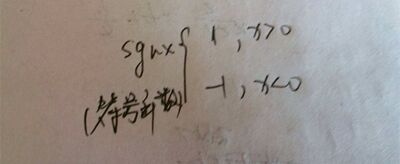 sgnx{ 1, x>0
-1, x<0
(符号函数)